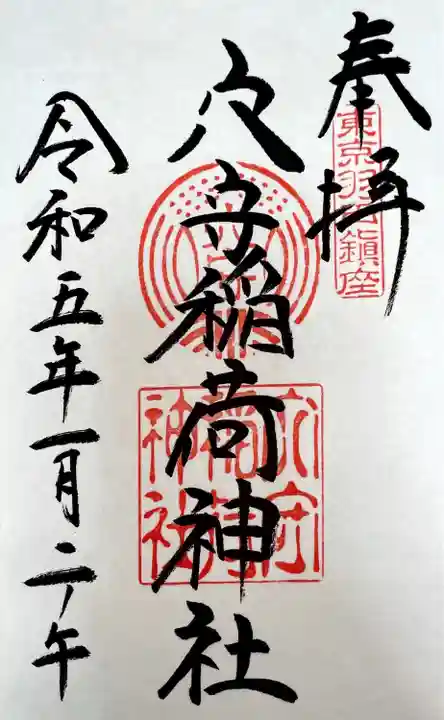 奉拝
東京羽田鎮座
穴守稲荷神社
穴守稲荷神社
令和五年一月二ノ午